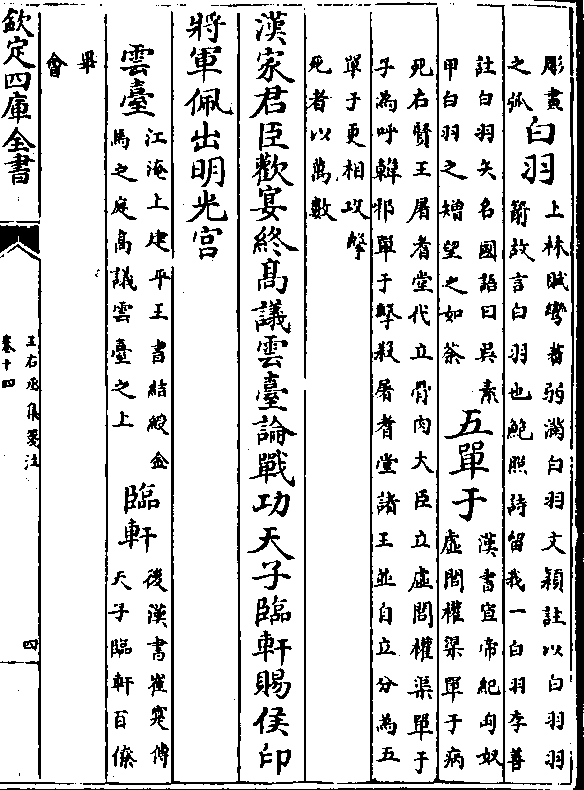 彫畫
之弧
白羽
上林賦彎蕃弱滿白羽文穎註以白羽羽
箭故言白羽也鮑照詩留我一白羽李善
註白羽矢名國語曰吳素
甲白羽之矰望之如荼
五單于
漢書宣帝紀匈奴
虛閭權渠單于病
死右賢王屠耆堂代立骨肉大臣立虛閭權渠單于
子為呼韓邪單于擊殺屠耆堂諸王並自立分為五
單于更相攻擊
死者以萬數
漢家君臣歡宴終髙議雲臺論戰功天子臨軒賜侯印
將軍佩出明光宫
雲臺
江淹上建平王書結綬金
馬之庭髙議雲臺之上
臨軒
後漢書崔寔傳
天子臨軒百僚
畢
會
欽定四庫全書
王右丞集箋注
卷十四
四